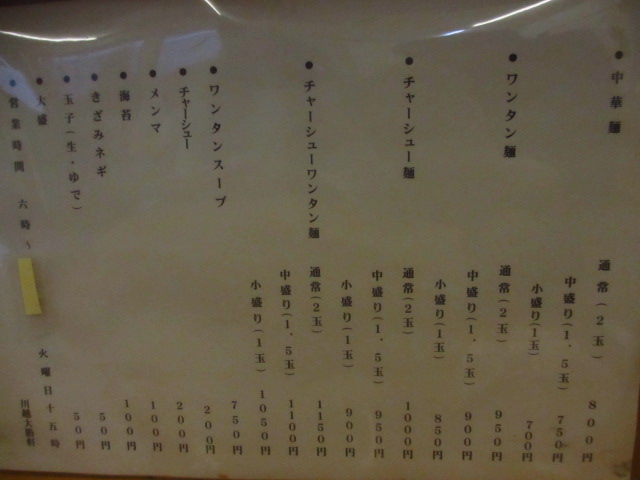 ●中華麺
通常(2玉) 800円
中盛り(1、5玉) 750円
小盛り(1玉) 700円
●ワンタン麺
通常(2玉) 950円
中盛り(1、5玉) 900円
小盛り(1玉) 850円
●チャーシュー麺
通常(2玉) 1000円
中盛り(1、5玉) 950円
小盛り(1玉) 900円
●チャーシューワンタン麺
通常(2玉) 1150円
中盛り(1、5玉) 1100円
小盛り(1玉) 1050円
●ワンタンスープ 750円
●チャーシュー 200円
●メンマ 200円
●海苔 100円
●きざみネギ 100円
●玉子(生・ゆで) 50円
●大盛 50円
●営業時間 六時〜 火曜日十五時
川越大勝軒